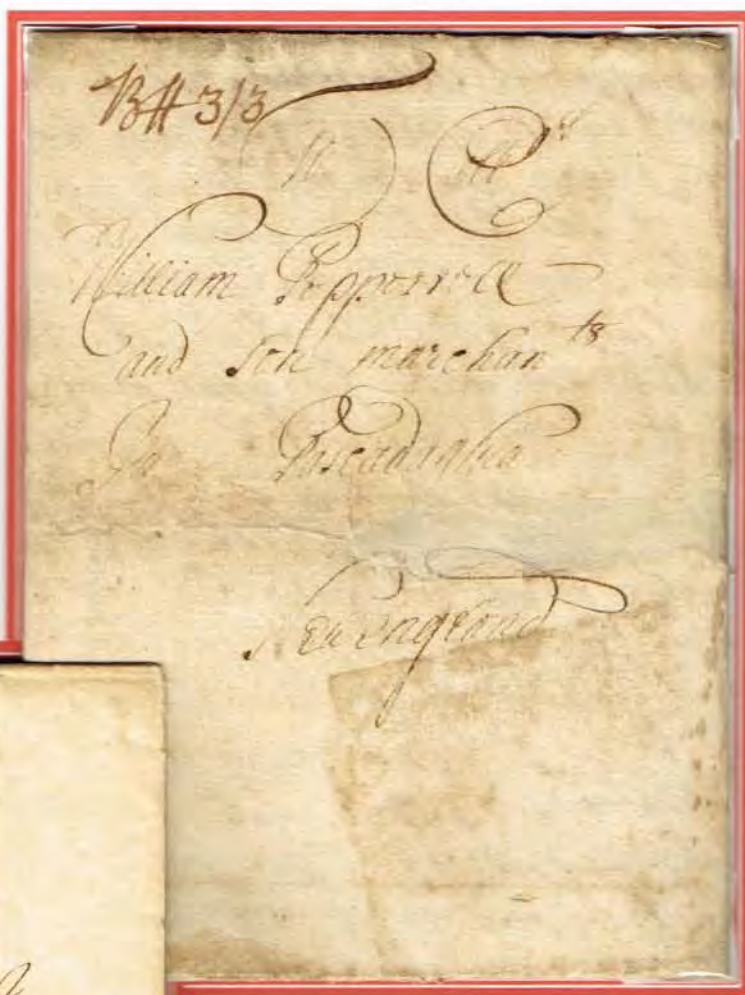 BH 3/3
To Mrs
William Pepperrell
and son marchants
In Pascaduaha
New England